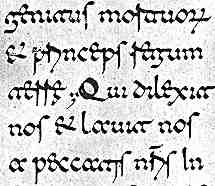 genitus mortuoꝝ
& princeps regum
terre; Qui dilexit
nos & lavit nos
a peccatis nr̄is In